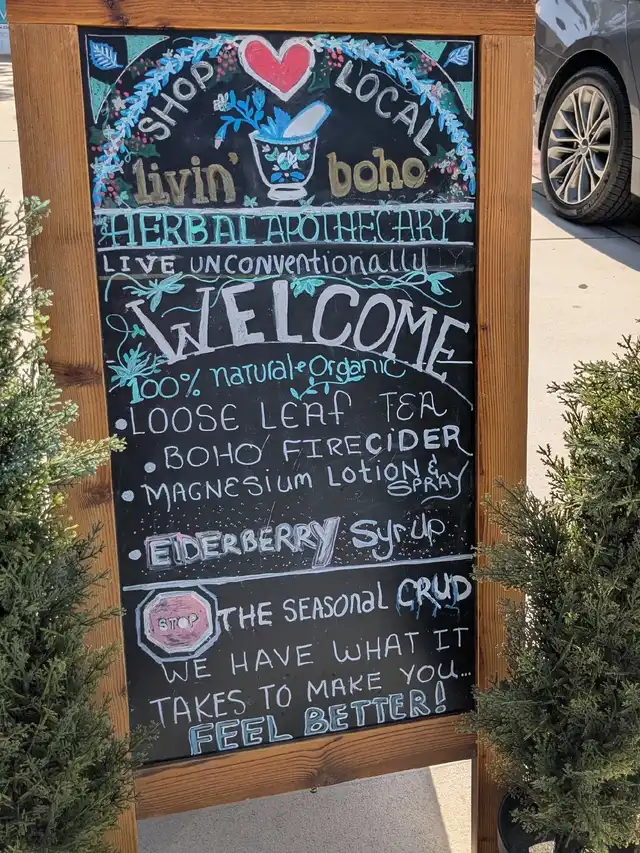 SHOP LOCAL
livin' boho
HERBAL APOTHECARY
LIVE UNCONVENTIONALLY
WELCOME
100% natural & Organic
• LOOSE LEAF TEA
• BOHO FIRECIDER
• MAGNESIUM LOTION &
SPRAY
• ElDERBERRY Syrup
STOP THE SEASONAL CRUD
WE HAVE WHAT IT
TAKES TO MAKE YOU...
FEEL BETTER!